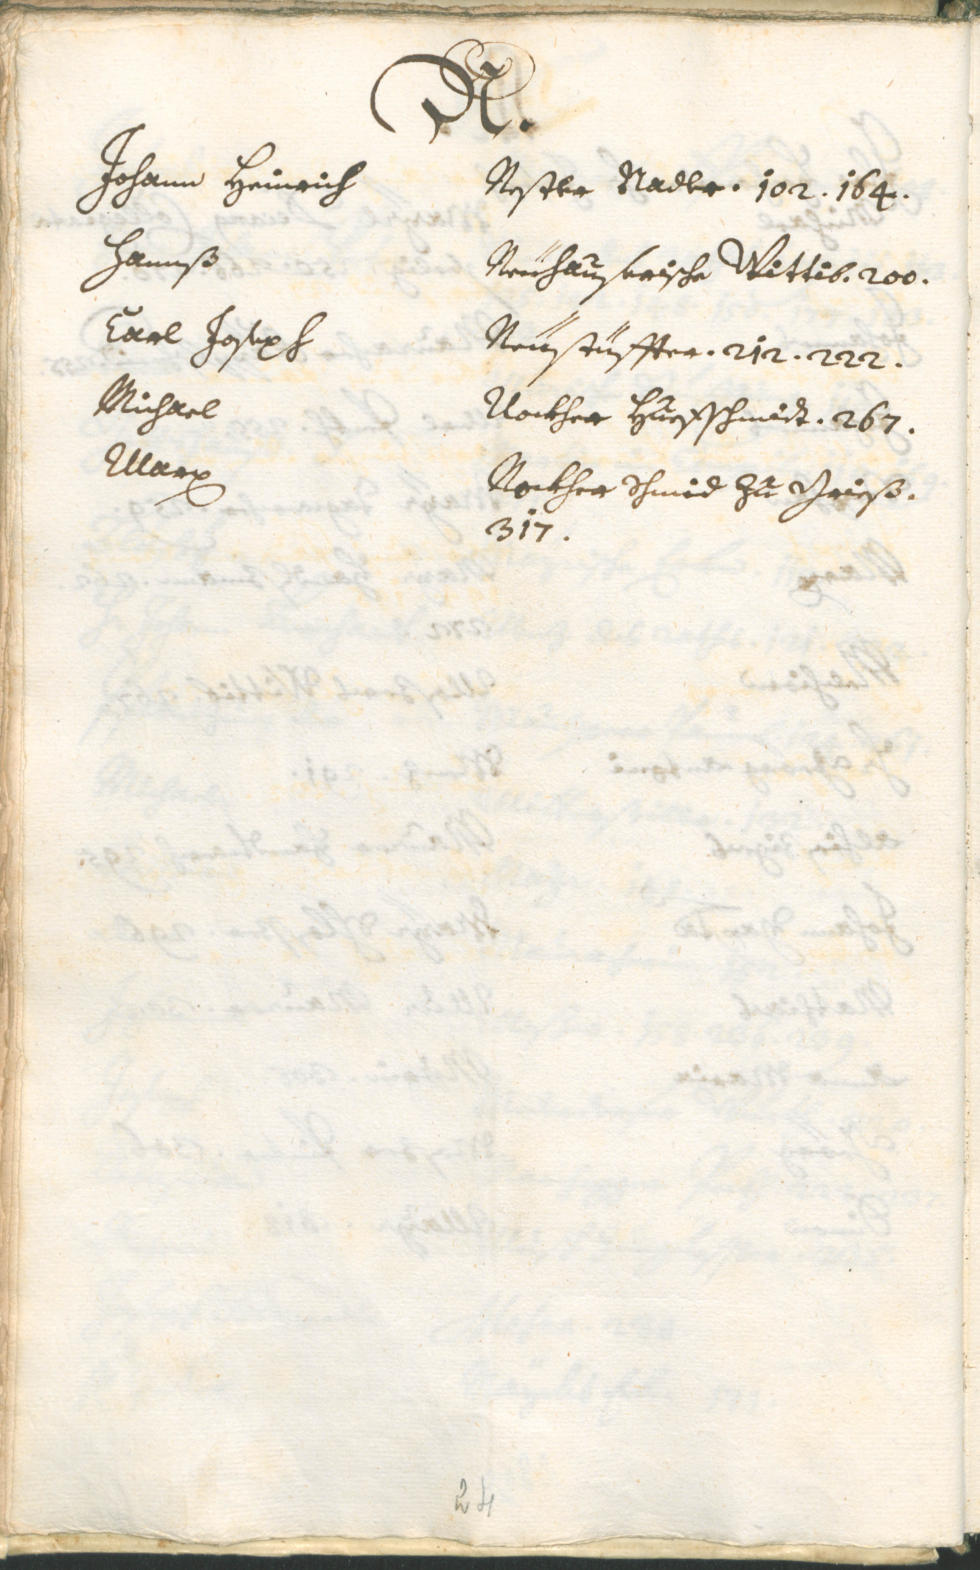 N.
Johann Heinrich Nestler Nadler. 102. 164.
Hannß Neühauserische Wittib. 200.
Carl Joseph Neüstüffter. 212. 222.
Michael Nockher Huefschmidt. 267.
Marx Nockher Schmid zu Grieß.
317.
24